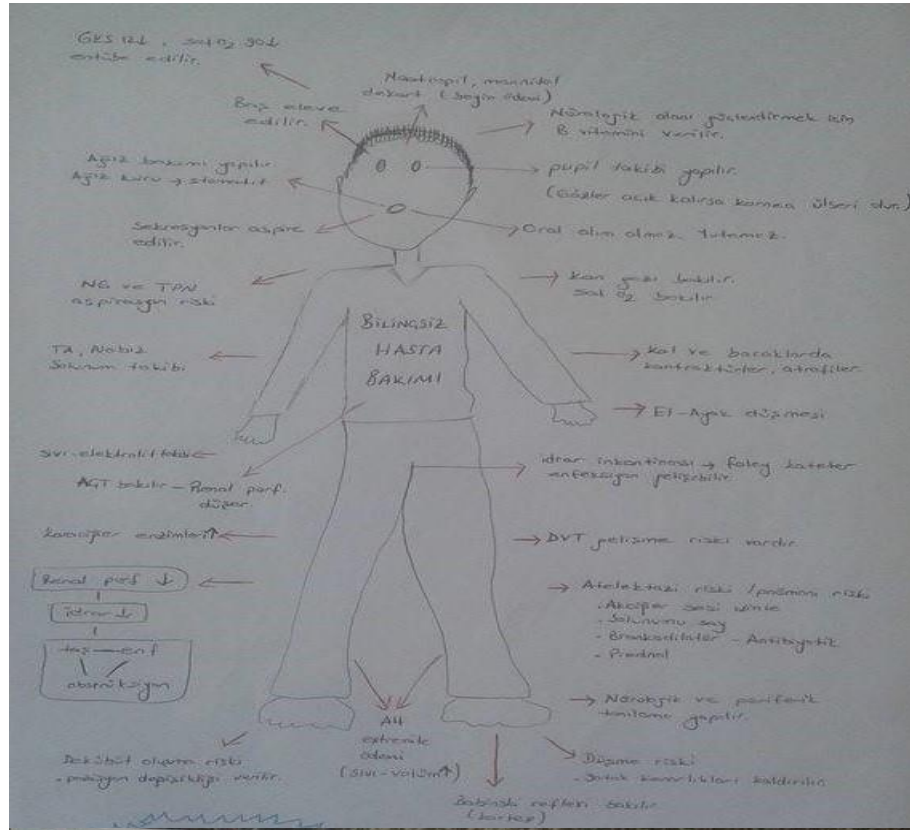 GKS 12↓, sat O2 90↓
entübe edilir.
Nootropil, mannitol
dekort (beyin ödemi)
Baş eleve
edilir.
Nörolojik alanı güçlendirmek için
B vitamini verilir.
Ağız bakımı yapılır.
Ağız kuru → stomatit
pupil takibi yapılır.
(Gözler açık kalırsa kornea ülseri olur.)
Sekresyonlar aspire
edilir.
Oral alım olmaz. Yutamaz.
NG ve TPN
aspirasyon riski
Kan gazı bakılır.
sat O2 bakılır
BİLİNÇSİZ
HASTA
BAKIMI
TA, Nabız
Solunum takibi
Kol ve bacaklarda
kontraktürler, atrofiler.
El-Ayak düşmesi
sıvı-elektrolit takibi
AGT bakılır - Renal perf.
düşer.
idrar inkontinansı → foley kateter
enfeksiyon gelişebilir.
karaciğer enzimleri↑
DVT gelişme riski vardır
Renal perf ↓
idrar ↓
taş - enf
obstrüksiyon
Atelektazi riski / pnömoni riski
- Akciğer sesi dinle
- Solunumu say
- Bronkodilatör - Antibiyotik
- Prednol
Nörolojik ve periferik
tanılama yapılır.
Dekübüt oluşma riski
- pozisyon değişikliği verilir.
Alt
extremite
ödemi
(sıvı-volüm↑)
Düşme riski
- Yatak kenarlıkları kaldırılır
Babinski refleksi bakılır
(korteks)